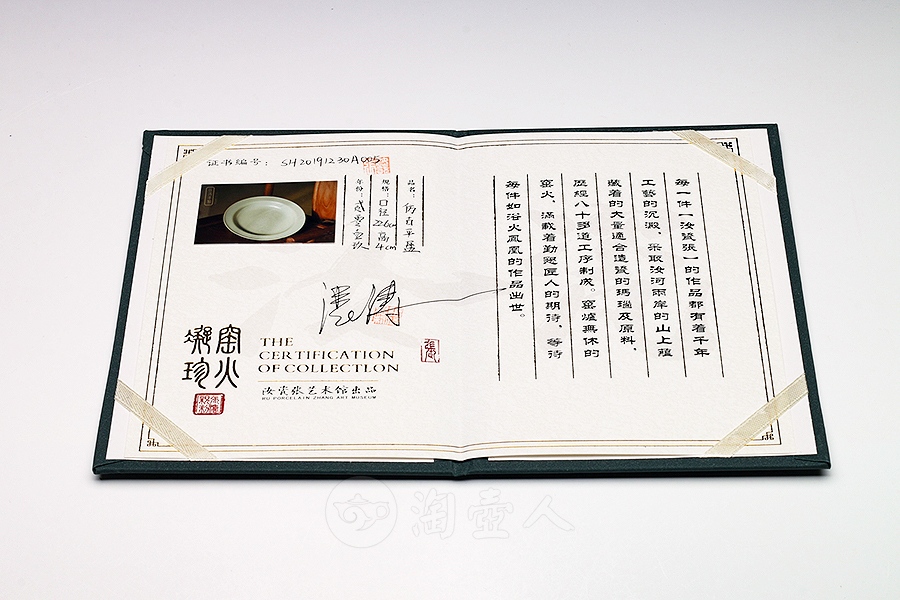 证书编号：SH20191230A005
品名：仿古平盘
规格：口径22.6cm 高4cm
年份：贰零壹玖
窑火
凝珍
THE
CERTIFICATION
OF COLLECTLON
汝瓷张艺术馆出品
RU PORCELAIN ZHANG ART MUSEUM
張
每一件【汝瓷張】的作品都有着千年
工藝的沉澱，采取汝河兩岸的山上蘊
藏着的大量適合造瓷的瑪瑙及原料，
歷經八十多道工序制成。窑爐無休的
窑火，滿載着勤懇匠人的期待，等待
每件如浴火鳳凰的作品出世。
淘壶人